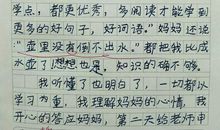 学点，都更优秀，多阅读才能学到
更多的好句子，好词语。”妈妈还说
“壶里没有倒不出水，”都把我比成
水壶了想想也是，知识的确不够。
我听懂了也明白了，一切都以
学习为重，我理解妈妈的心情，我
开心的答应妈妈，第二天给老师申